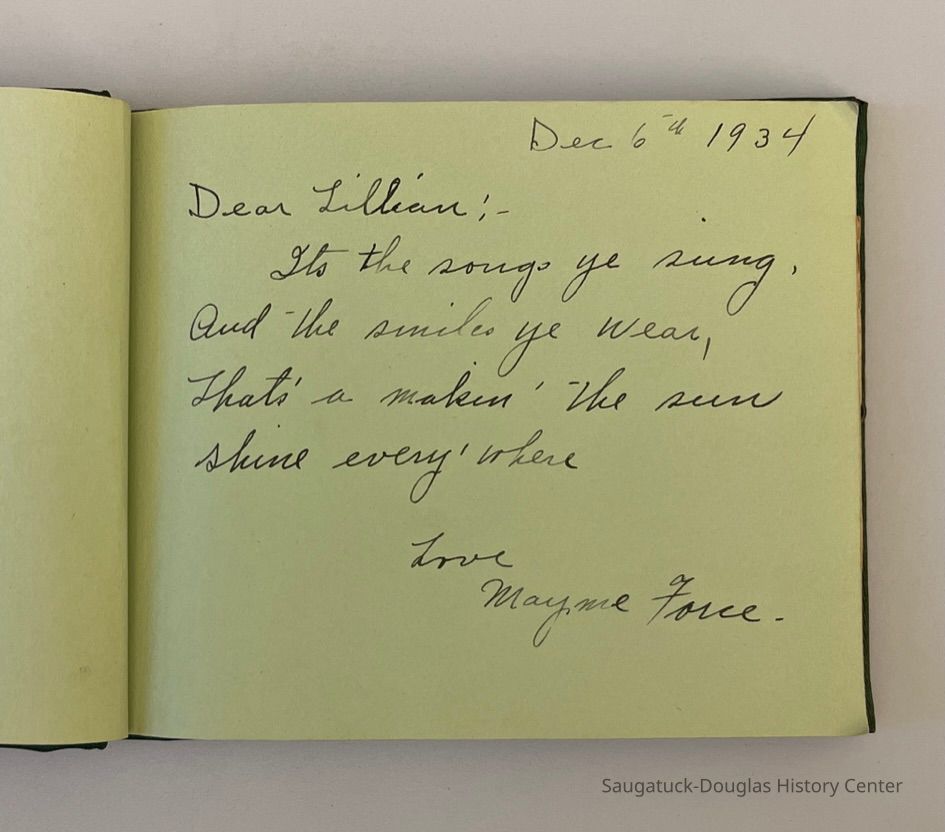 Dec 6th 1934
Dear Lillian;-
Its the songs ye sing,
And the smiles ye wear,
That's a makin' the sun
shine every'where
Love
Mayme Force.
Saugatuck-Douglas History Center